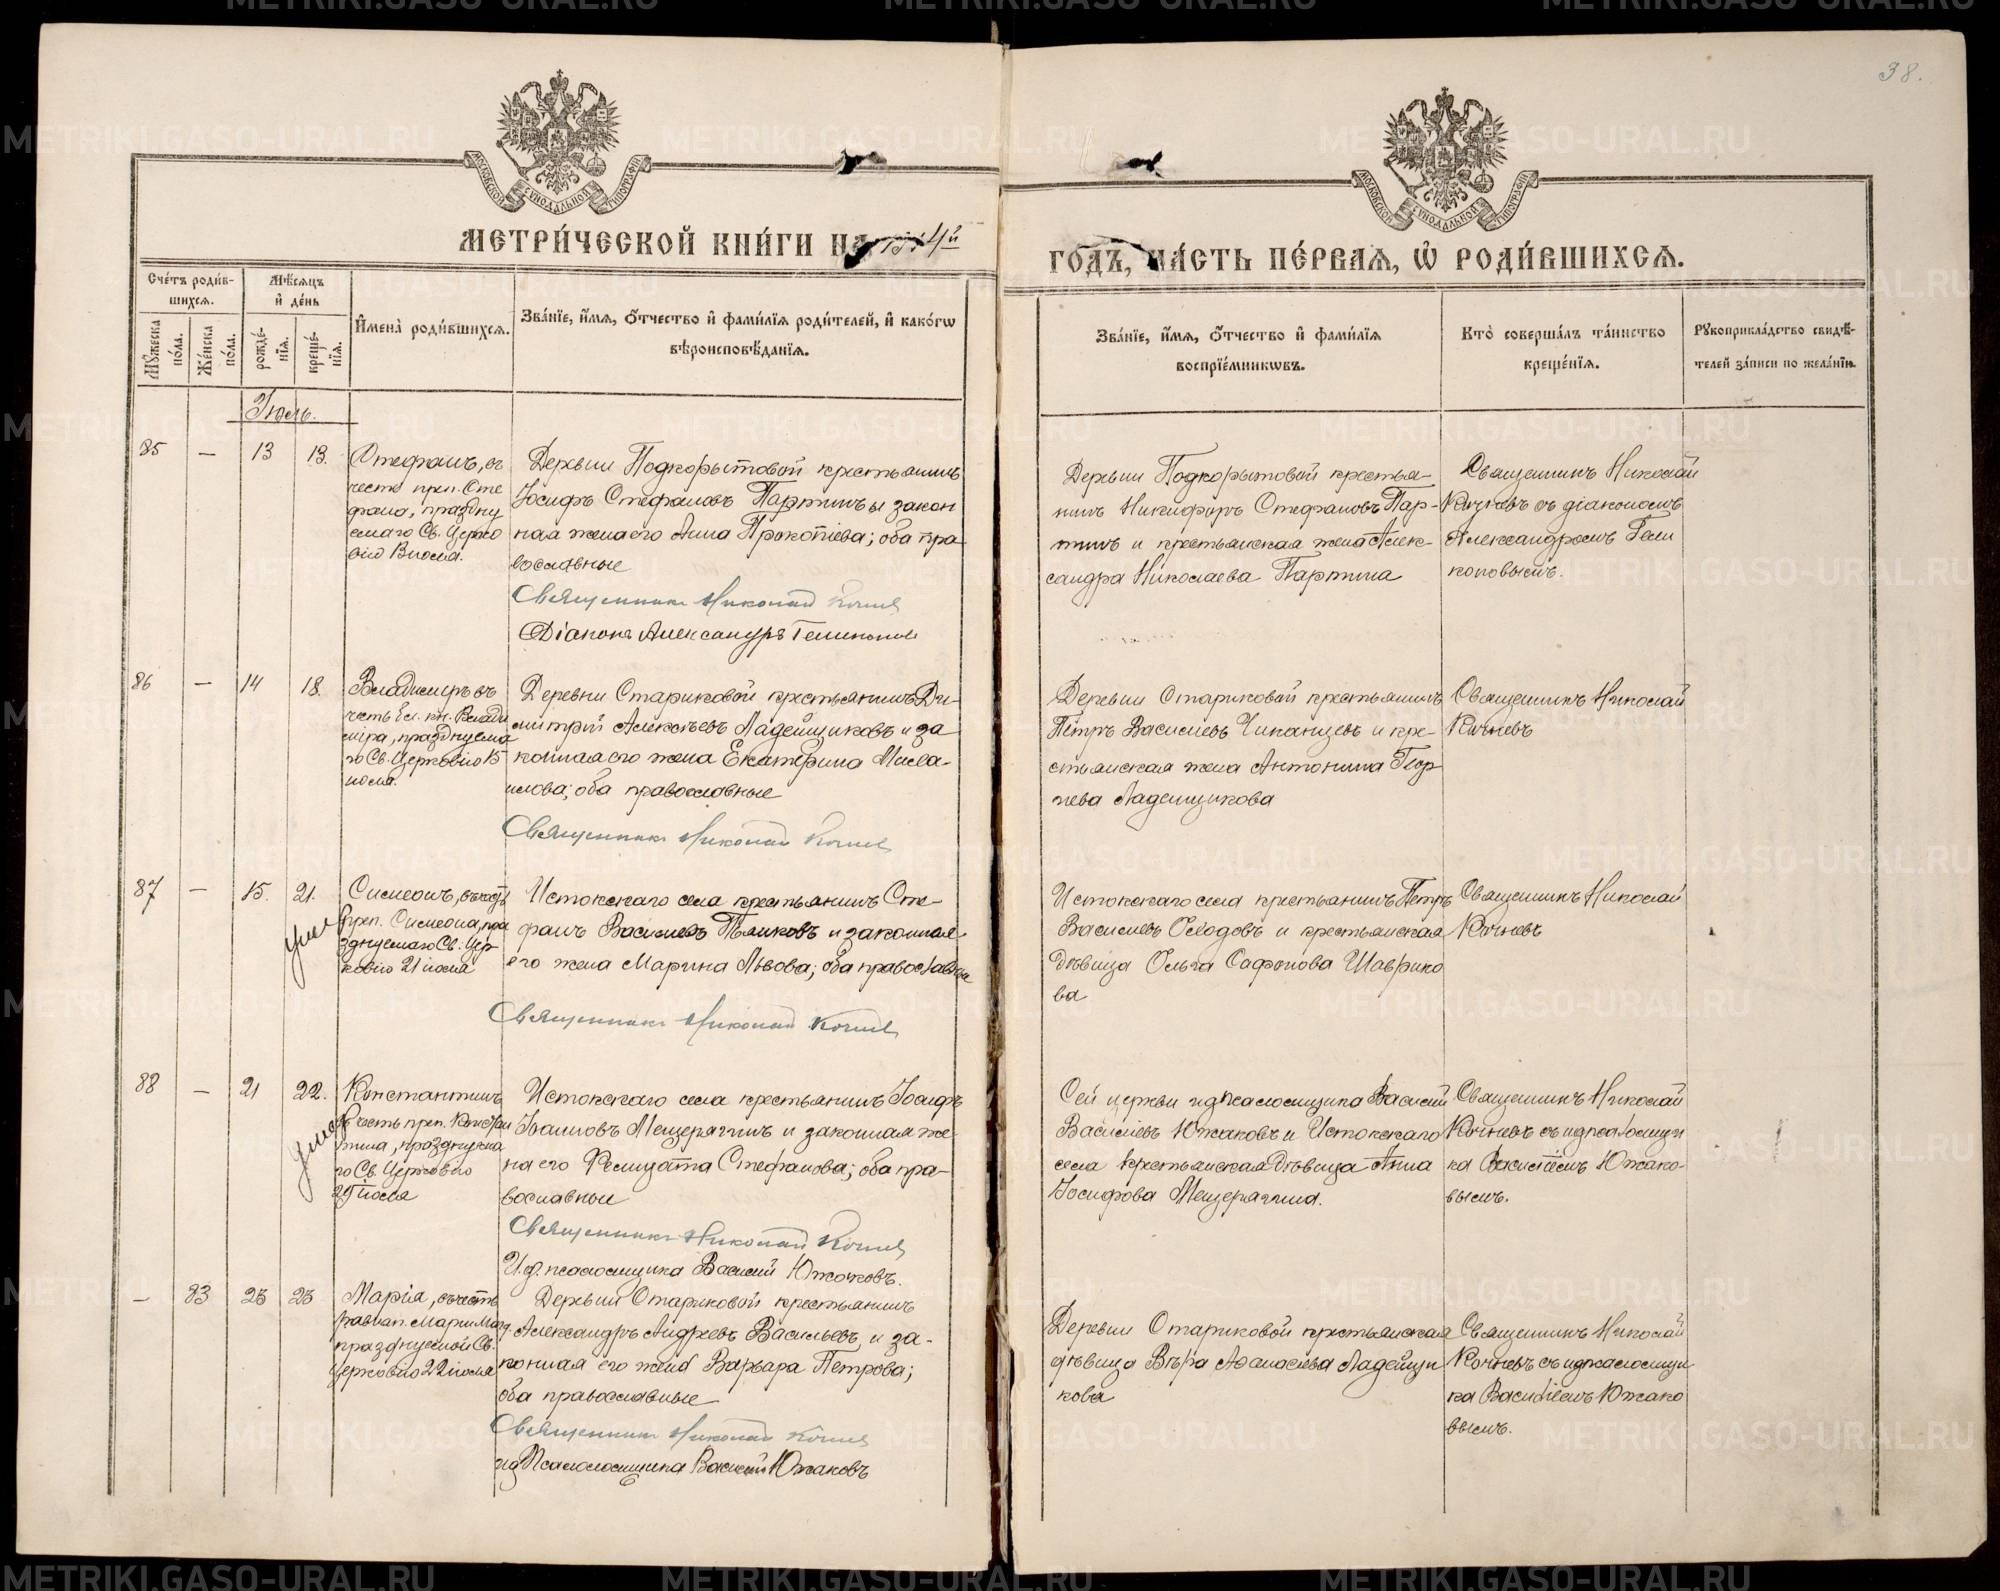 38.
МОСКОВСКОЙ СѴНОДАЛЬНОЙ ТИПОГРАФІИ
МОСКОВСКОЙ СѴНОДАЛЬНОЙ ТИПОГРАФІИ
МЕТРИ́ЧЕСКОЙ КНИ́ГИ НА 1914й
ГОДЪ, ЧА́СТЬ ПЕ́РВАЯ, Ѡ РОДИ́ВШИХСЯ.
Сче́тъ роди́в-
шихся.
Мѣ́сяцъ
и҆ де́нь
Мꙋ́жеска по́ла.
Же́нска по́ла.
рожде́-
нїя.
креще́-
нїя.
И҆мена̀ роди́вшихся.
Зва́нїе, и҆́мя, ѻ҆́тчество и҆ фами́лїя роди́телей, и҆ како́гѡ
вѣроисповѣ́данїя.
Зва́нїе, и҆́мя, ѻ҆́тчество и҆ фами́лїя
воспрїе́мникѡвъ.
Кто̀ соверша́лъ та́инство
креще́нїя.
Рꙋкоприкла́дство свидѣ́-
телей за́писи по жела́нїю.
Іюль.
85
—
13
13.
Стефанъ, въ
честь преп. Сте
фана, праздну
емаго Св. Церко
вію 13 іюля.
Деревни Подкорытовой крестьянинъ
Іосифъ Стефановъ Партинъ и закон
ная жена его Анна Прокопіева; оба пра
вославные
Священникъ Николай Кочнев
Діаконъ Александръ Геликонов
Деревни Подкорытовой крестья-
нинъ Никифоръ Стефановъ Пар-
тинъ и крестьянская жена Алек-
сандра Николаева Партина
Священникъ Николай
Кочневъ съ діакономъ
Александромъ Гели
коновымъ.
86
—
14
18.
Владимиръ въ
честь бл. кн. Влади
мира, празднуема
го Св. Церковію 15
іюля.
Деревни Стариковой крестьянинъ Ди-
митрій Алексѣевъ Ладейщиковъ и за
конная его жена Екатерина Миха-
илова; оба православные
Священникъ Николай Кочнев
Деревни Стариковой крестьянинъ
Петръ Василіевъ Чиканцевъ и кре-
стьянская жена Антонина Геор
гіева Ладейщикова
Священникъ Николай
Кочневъ
87
—
15.
21.
Умеръ
Симеонъ, въ честь
преп. Симеона, пра
зднуемаго Св. Цер
ковію 21 іюля
Истокскаго села крестьянинъ Сте-
фанъ Василіевъ Пьянковъ и законная
его жена Марина Львова; оба православные
Священникъ Николай Кочнев
Истокскаго села крестьянинъ Петръ
Василіевъ Ѳеодовъ и крестьянская
дѣвица Ольга Сафонова Шаврико
ва
Священникъ Николай
Кочневъ
88
—
21
22.
Умеръ
Константинъ
въ честь преп. Констан
тина, празднуема
го Св. Церковію
29 іюля
Истокскаго села крестьянинъ Іосифъ
Іоанновъ Мещерягинъ и законная же-
на его Феликитата Стефанова; оба пра-
вославные
Священникъ Николай Кочнев
И. д. псаломщика Василій Южаковъ.
Сей церкви и д псаломщика Василій
Василіевъ Южаковъ и Истокскаго
села крестьянская дѣвица Анна
Іосифова Мещерягина.
Священникъ Николай
Кочневъ съ и д псаломщи
ка Василіемъ Южако-
вымъ.
—
83
23
23
Марія, въ честь
равноап. Маріи Магд.
празднуемой Св.
Церковію 22 іюля
Деревни Стариковой крестьянинъ
Александръ Андреевъ Васильевъ и за-
конная его жена Варвара Петрова;
оба православные
Священникъ Николай Кочнев
ид Псаломщика Василій Южаковъ
Деревни Стариковой крестьянская
дѣвица Вѣра Аѳанасіева Ладейщи
кова
Священникъ Николай
Кочневъ съ и д псаломщи
ка Василіемъ Южако
вымъ.
METRIKI.GASO-URAL.RU